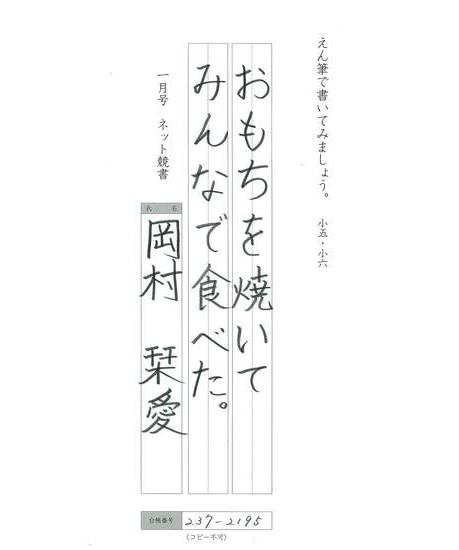 えん筆で書いてみましょう。　小五・小六
おもちを焼いて
みんなで食べた。
一月号　ネット競書
氏　名
岡村　栞愛
台帳番号
237-2195
(コピー不可)